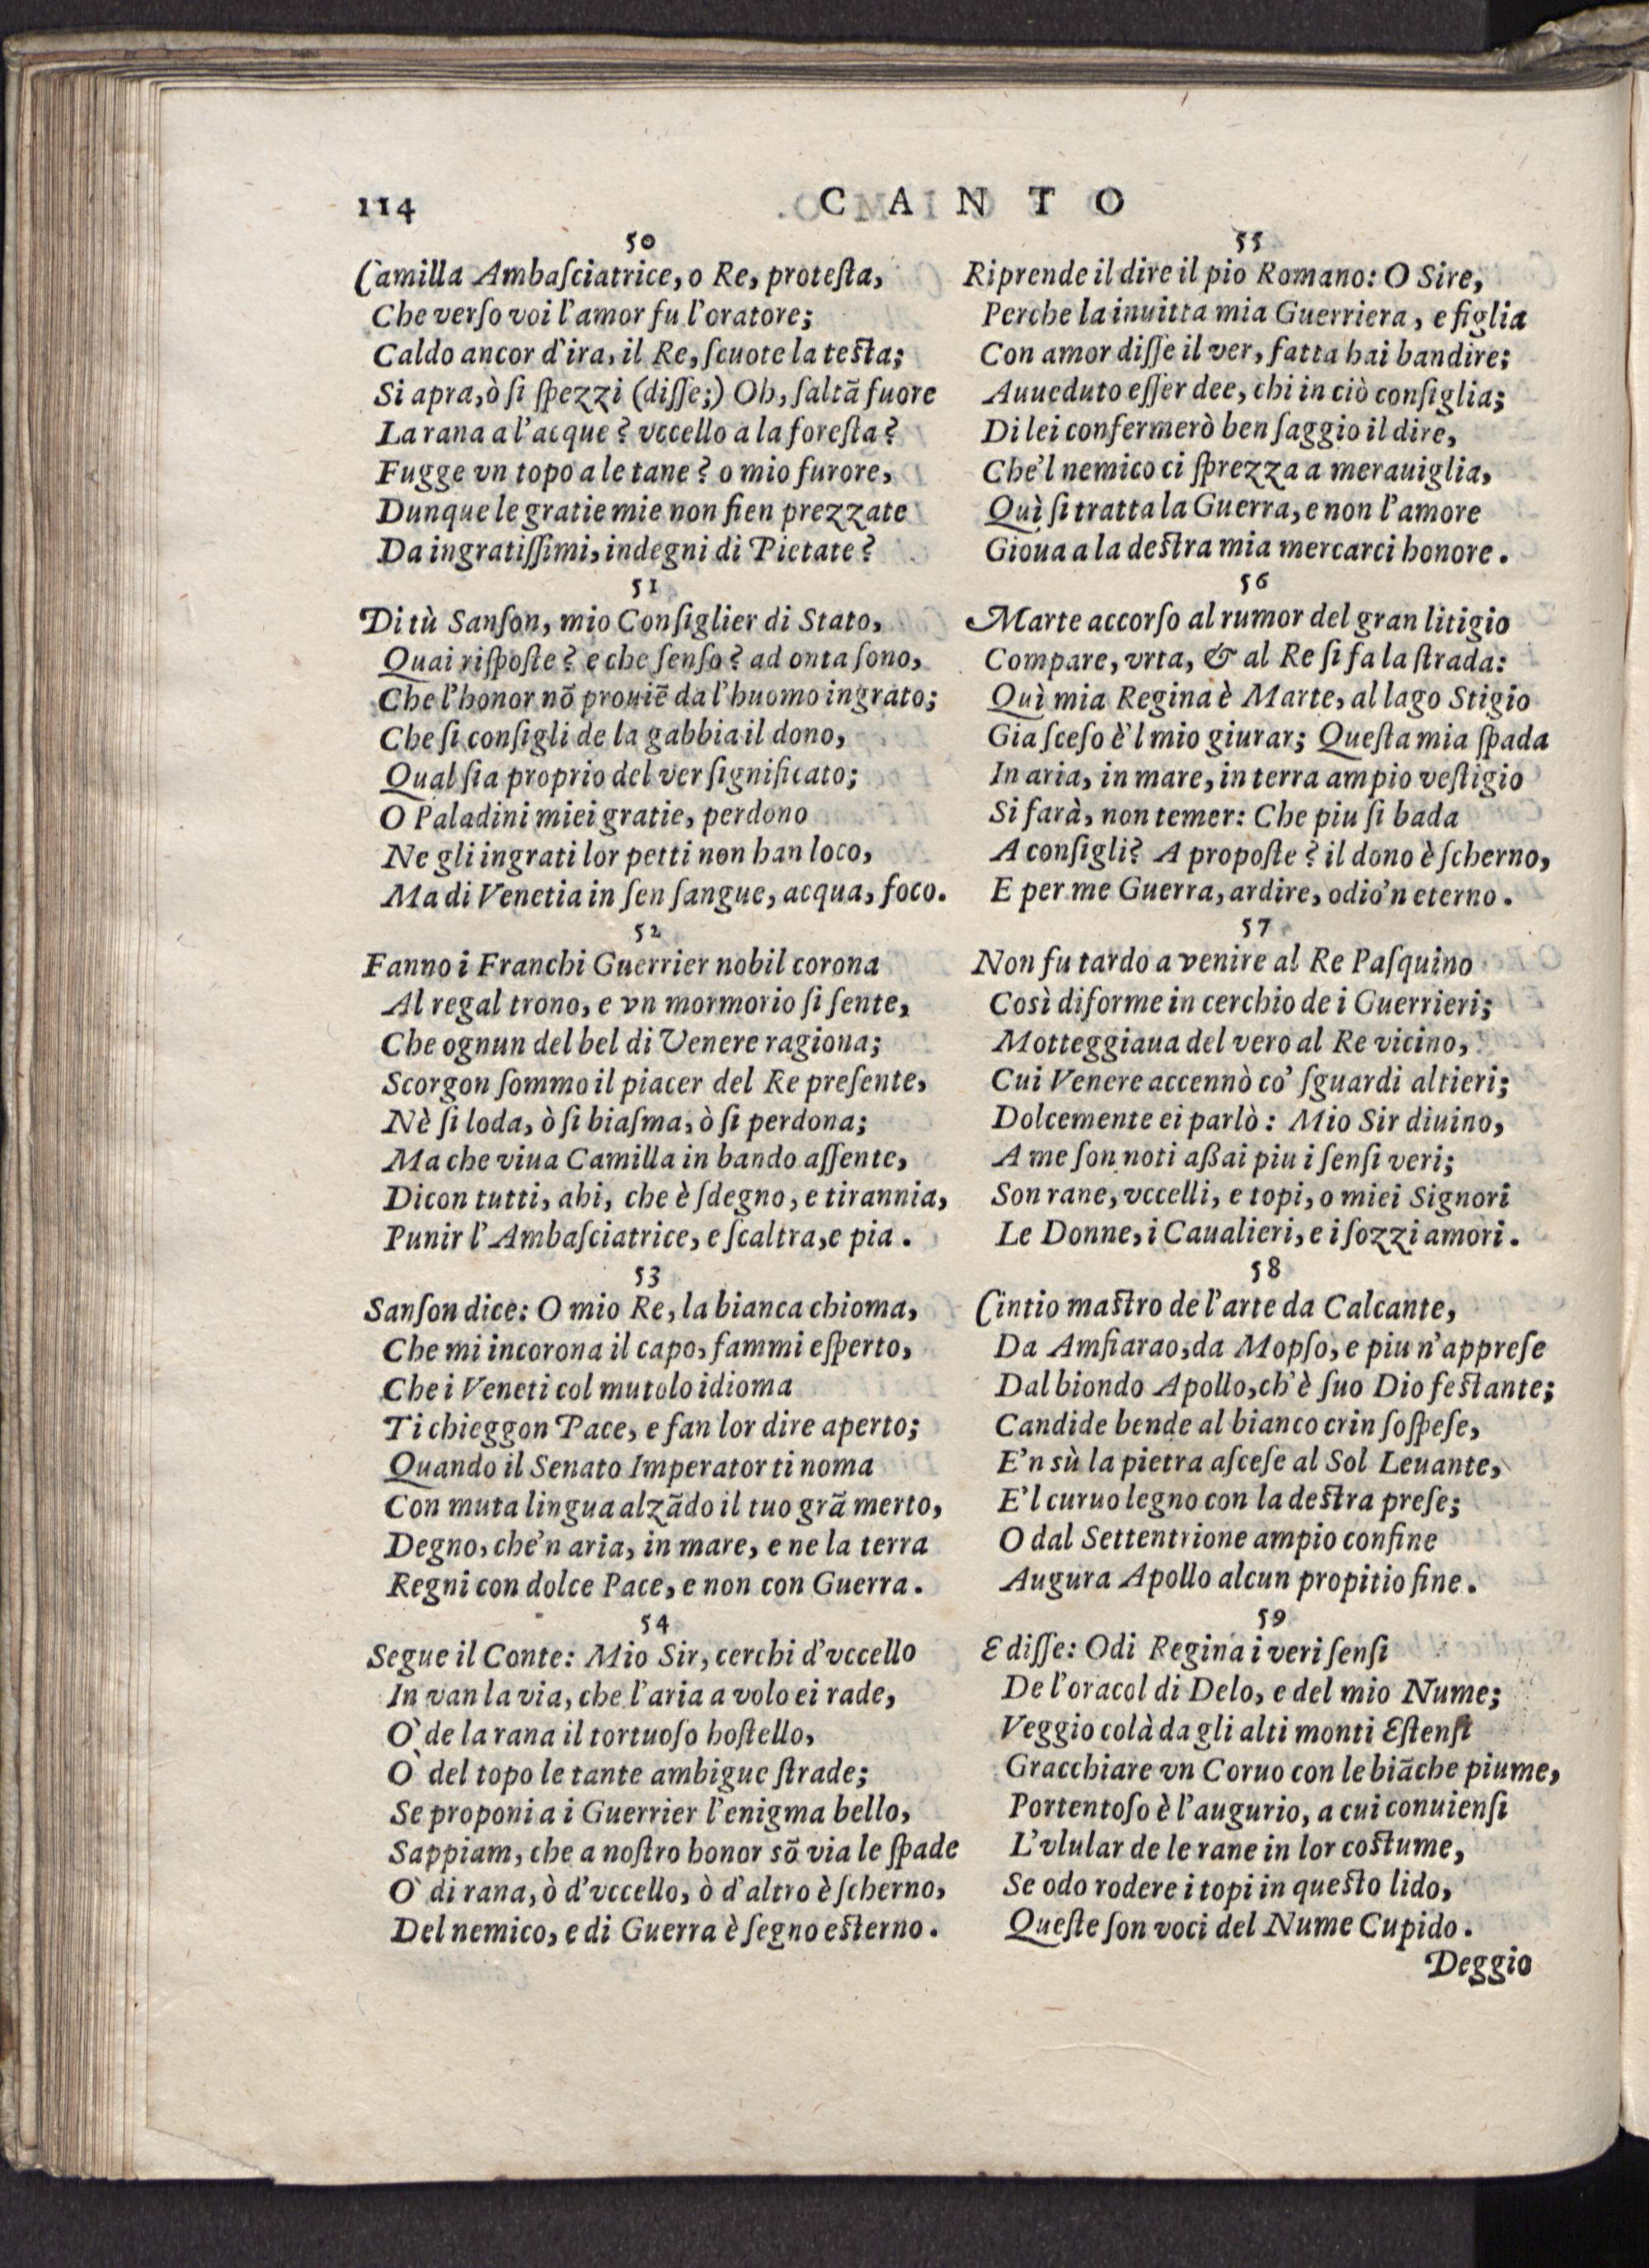 114
CANTO
50
Camilla Ambaſciatrice, o Re, proteſta,
Che verſo voi l'amor fu l'oratore;
Caldo ancor d'ira, il Re, ſcuote la teſta;
Si apra, ò ſi ſpezzi (diſſe;) Oh, ſaltā fuore
La rana a l'acque? vccello a la foreſta?
Fugge vn topo a le tane? o mio furore,
Dunque le gratie mie non fien prezzate
Da ingratiſſimi, indegni di Pietate?
51
Di tù Sanſon, mio Conſiglier di Stato,
Quai riſpoſte? e che ſenſo? ad onta ſono,
Che l'honor nō prouiē da l'huomo ingrato;
Che ſi conſigli de la gabbia il dono,
Qual ſia proprio del ver ſignificato;
O Paladini miei gratie, perdono
Ne gli ingrati lor petti non han loco,
Ma di Venetia in ſen ſangue, acqua, foco.
52
Fanno i Franchi Guerrier nobil corona
Al regal trono, e vn mormorio ſi ſente,
Che ognun del bel di Venere ragiona;
Scorgon ſommo il piacer del Re preſente,
Nè ſi loda, ò ſi biaſma, ò ſi perdona;
Ma che viua Camilla in bando aſſente,
Dicon tutti, ahi, che è ſdegno, e tirannia,
Punir l'Ambaſciatrice, e ſcaltra, e pia.
53
Sanſon dice: O mio Re, la bianca chioma,
Che mi incorona il capo, fammi eſperto,
Che i Veneti col mutolo idioma
Ti chieggon Pace, e fan lor dire aperto;
Quando il Senato Imperator ti noma
Con muta lingua alzādo il tuo grā merto,
Degno, che'n aria, in mare, e ne la terra
Regni con dolce Pace, e non con Guerra.
54
Segue il Conte: Mio Sir, cerchi d'vccello
In van la via, che l'aria a volo ei rade,
O' de la rana il tortuoſo hoſtello,
O' del topo le tante ambigue ſtrade;
Se proponi a i Guerrier l'enigma bello,
Sappiam, che a noſtro honor sō via le ſpade
O' di rana, ò d'vccello, ò d'altro è ſcherno,
Del nemico, e di Guerra è ſegno eſterno.
55
Riprende il dire il pio Romano: O Sire,
Perche la inuitta mia Guerriera, e figlia
Con amor diſſe il ver, fatta hai bandire;
Auueduto eſſer dee, chi in ciò conſiglia;
Di lei confermerò ben ſaggio il dire,
Che'l nemico ci ſprezza a merauiglia,
Quì ſi tratta la Guerra, e non l'amore
Gioua a la deſtra mia mercarci honore.
56
Marte accorſo al rumor del gran litigio
Compare, vrta, & al Re ſi fa la ſtrada:
Quì mia Regina è Marte, al lago Stigio
Gia ſceſo è'l mio giurar; Queſta mia ſpada
In aria, in mare, in terra ampio veſtigio
Si farà, non temer: Che piu ſi bada
A conſigli? A propoſte? il dono è ſcherno,
E per me Guerra, ardire, odio'n eterno.
57
Non fu tardo a venire al Re Paſquino
Così diforme in cerchio de i Guerrieri;
Motteggiaua del vero al Re vicino,
Cui Venere accennò co' ſguardi altieri;
Dolcemente ei parlò: Mio Sir diuino,
A me ſon noti aßai piu i ſenſi veri;
Son rane, vccelli, e topi, o miei Signori
Le Donne, i Caualieri, e i ſozzi amori.
58
Cintio maſtro de l'arte da Calcante,
Da Amfiarao, da Mopſo, e piu n'appreſe
Dal biondo Apollo, ch'è ſuo Dio feſtante;
Candide bende al bianco crin ſoſpeſe,
E'n sù la pietra aſceſe al Sol Leuante,
E'l curuo legno con la deſtra preſe;
O dal Settentrione ampio confine
Augura Apollo alcun propitio fine.
59
E diſſe: Odi Regina i veri ſenſi
De l'oracol di Delo, e del mio Nume;
Veggio colà da gli alti monti Eſtenſi
Gracchiare vn Coruo con le biāche piume,
Portentoſo è l'augurio, a cui conuienſi
L'vlular de le rane in lor coſtume,
Se odo rodere i topi in queſto lido,
Queſte ſon voci del Nume Cupido.
Deggio